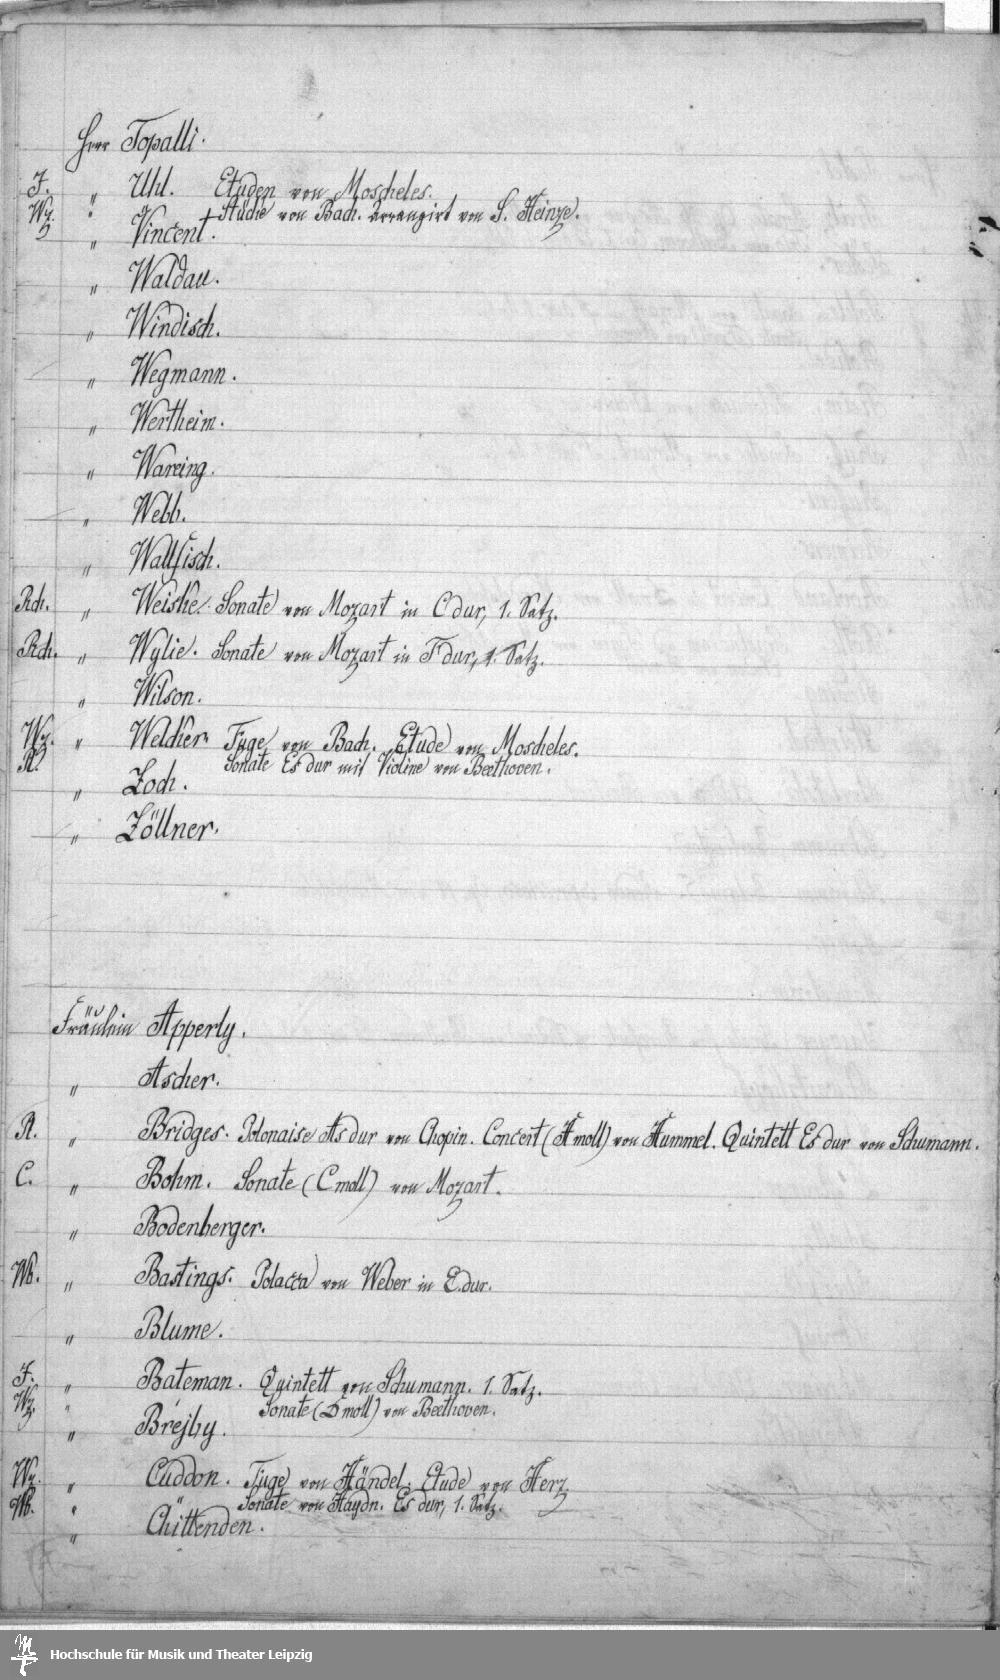 Herr Topalli.
F. " Uhl. Etuden von Moscheles.
Wz. " Studie von Bach. arrangirt von S. Heinze.
" Vincent.
" Waldau.
" Windisch.
" Wegmann.
" Wertheim.
" Wareing.
" Webb.
" Wallfisch.
Rch. " Weiske. Sonate von Mozart in C dur, 1. Satz.
Rch. " Wylie. Sonate von Mozart in F dur, 1. Satz.
" Wilson.
Wz. " Welcker. Fuge von Bach. Etude von Moscheles.
R. Sonate Es dur mit Violine von Beethoven.
" Zoch.
" Zöllner.
Fräulein Apperly.
" Ascher.
R. " Bridges. Polonaise As dur von Chopin. Concert (H moll) von Hummel. Quintett Es dur von Schumann.
C. " Bohm. Sonate (C moll) von Mozart.
" Bodenberger.
Wb. " Bastings. Polacca von Weber in E. dur.
" Blume.
F. " Bateman. Quintett von Schumann. 1. Satz.
Wz. " Sonate (D moll) von Beethoven.
" Brejby.
Wz. " Cuddon. Fuge von Händel. Etude von Herz.
Wb. " Sonate von Haydn. Es dur, 1. Satz.
" Chittenden.
Hochschule für Musik und Theater Leipzig